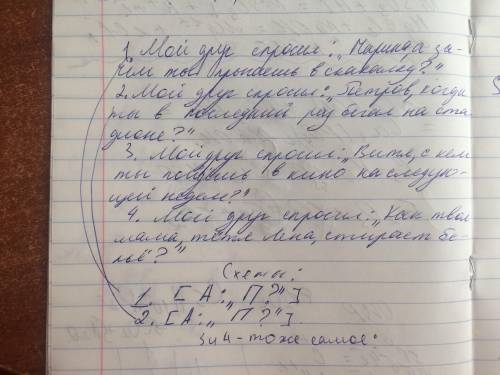 1. Мой друг спросил: „Маринда за-
чем ты прыгаешь в скакалку?"
2. Мой друг спросил: „Петров, когда
ты в последний раз бегал на ста-
дионе?"
3. Мой друг спросил: „Витя, с кем
ты пойдешь в кино на следую-
щей неделе?"
4. Мой друг спросил: „Как твоя
мама, тётя Лена, стирает бе-
льё"?"
Схемы:
1. [А: „П?"]
2. [А: „П?"]
3 и 4 - тоже самое: